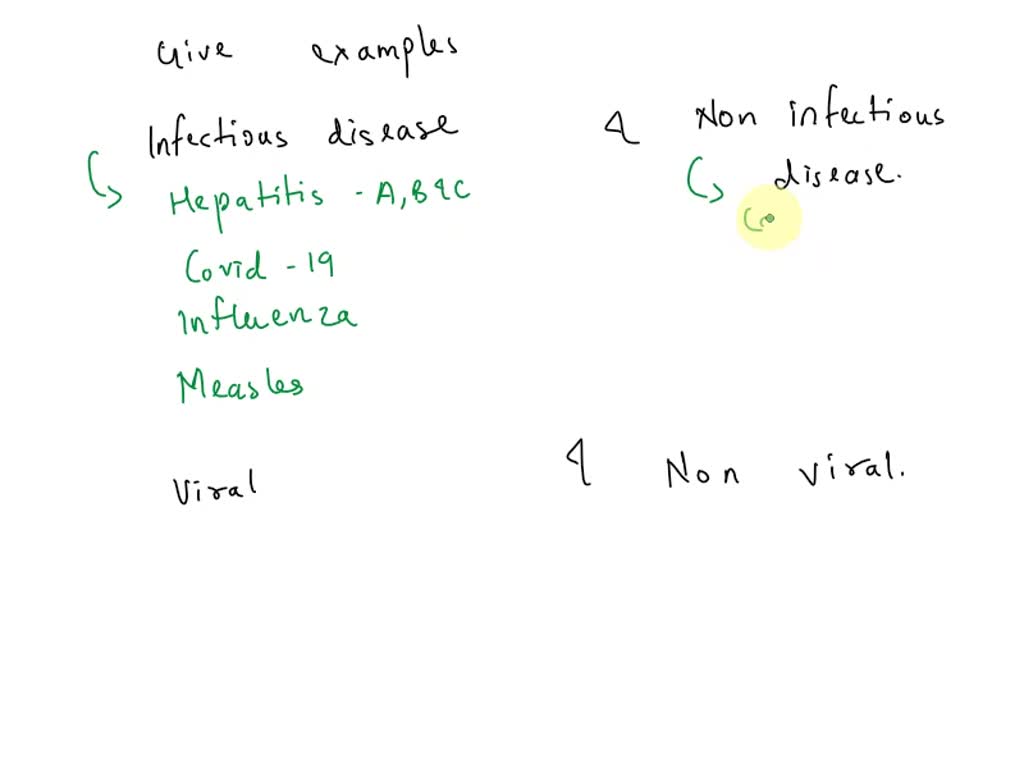 Give examples
Infectious disease & Non infectious
disease.
Hepatitis - A, B & C
Covid - 19
Influenza
Measles
Viral & Non viral.